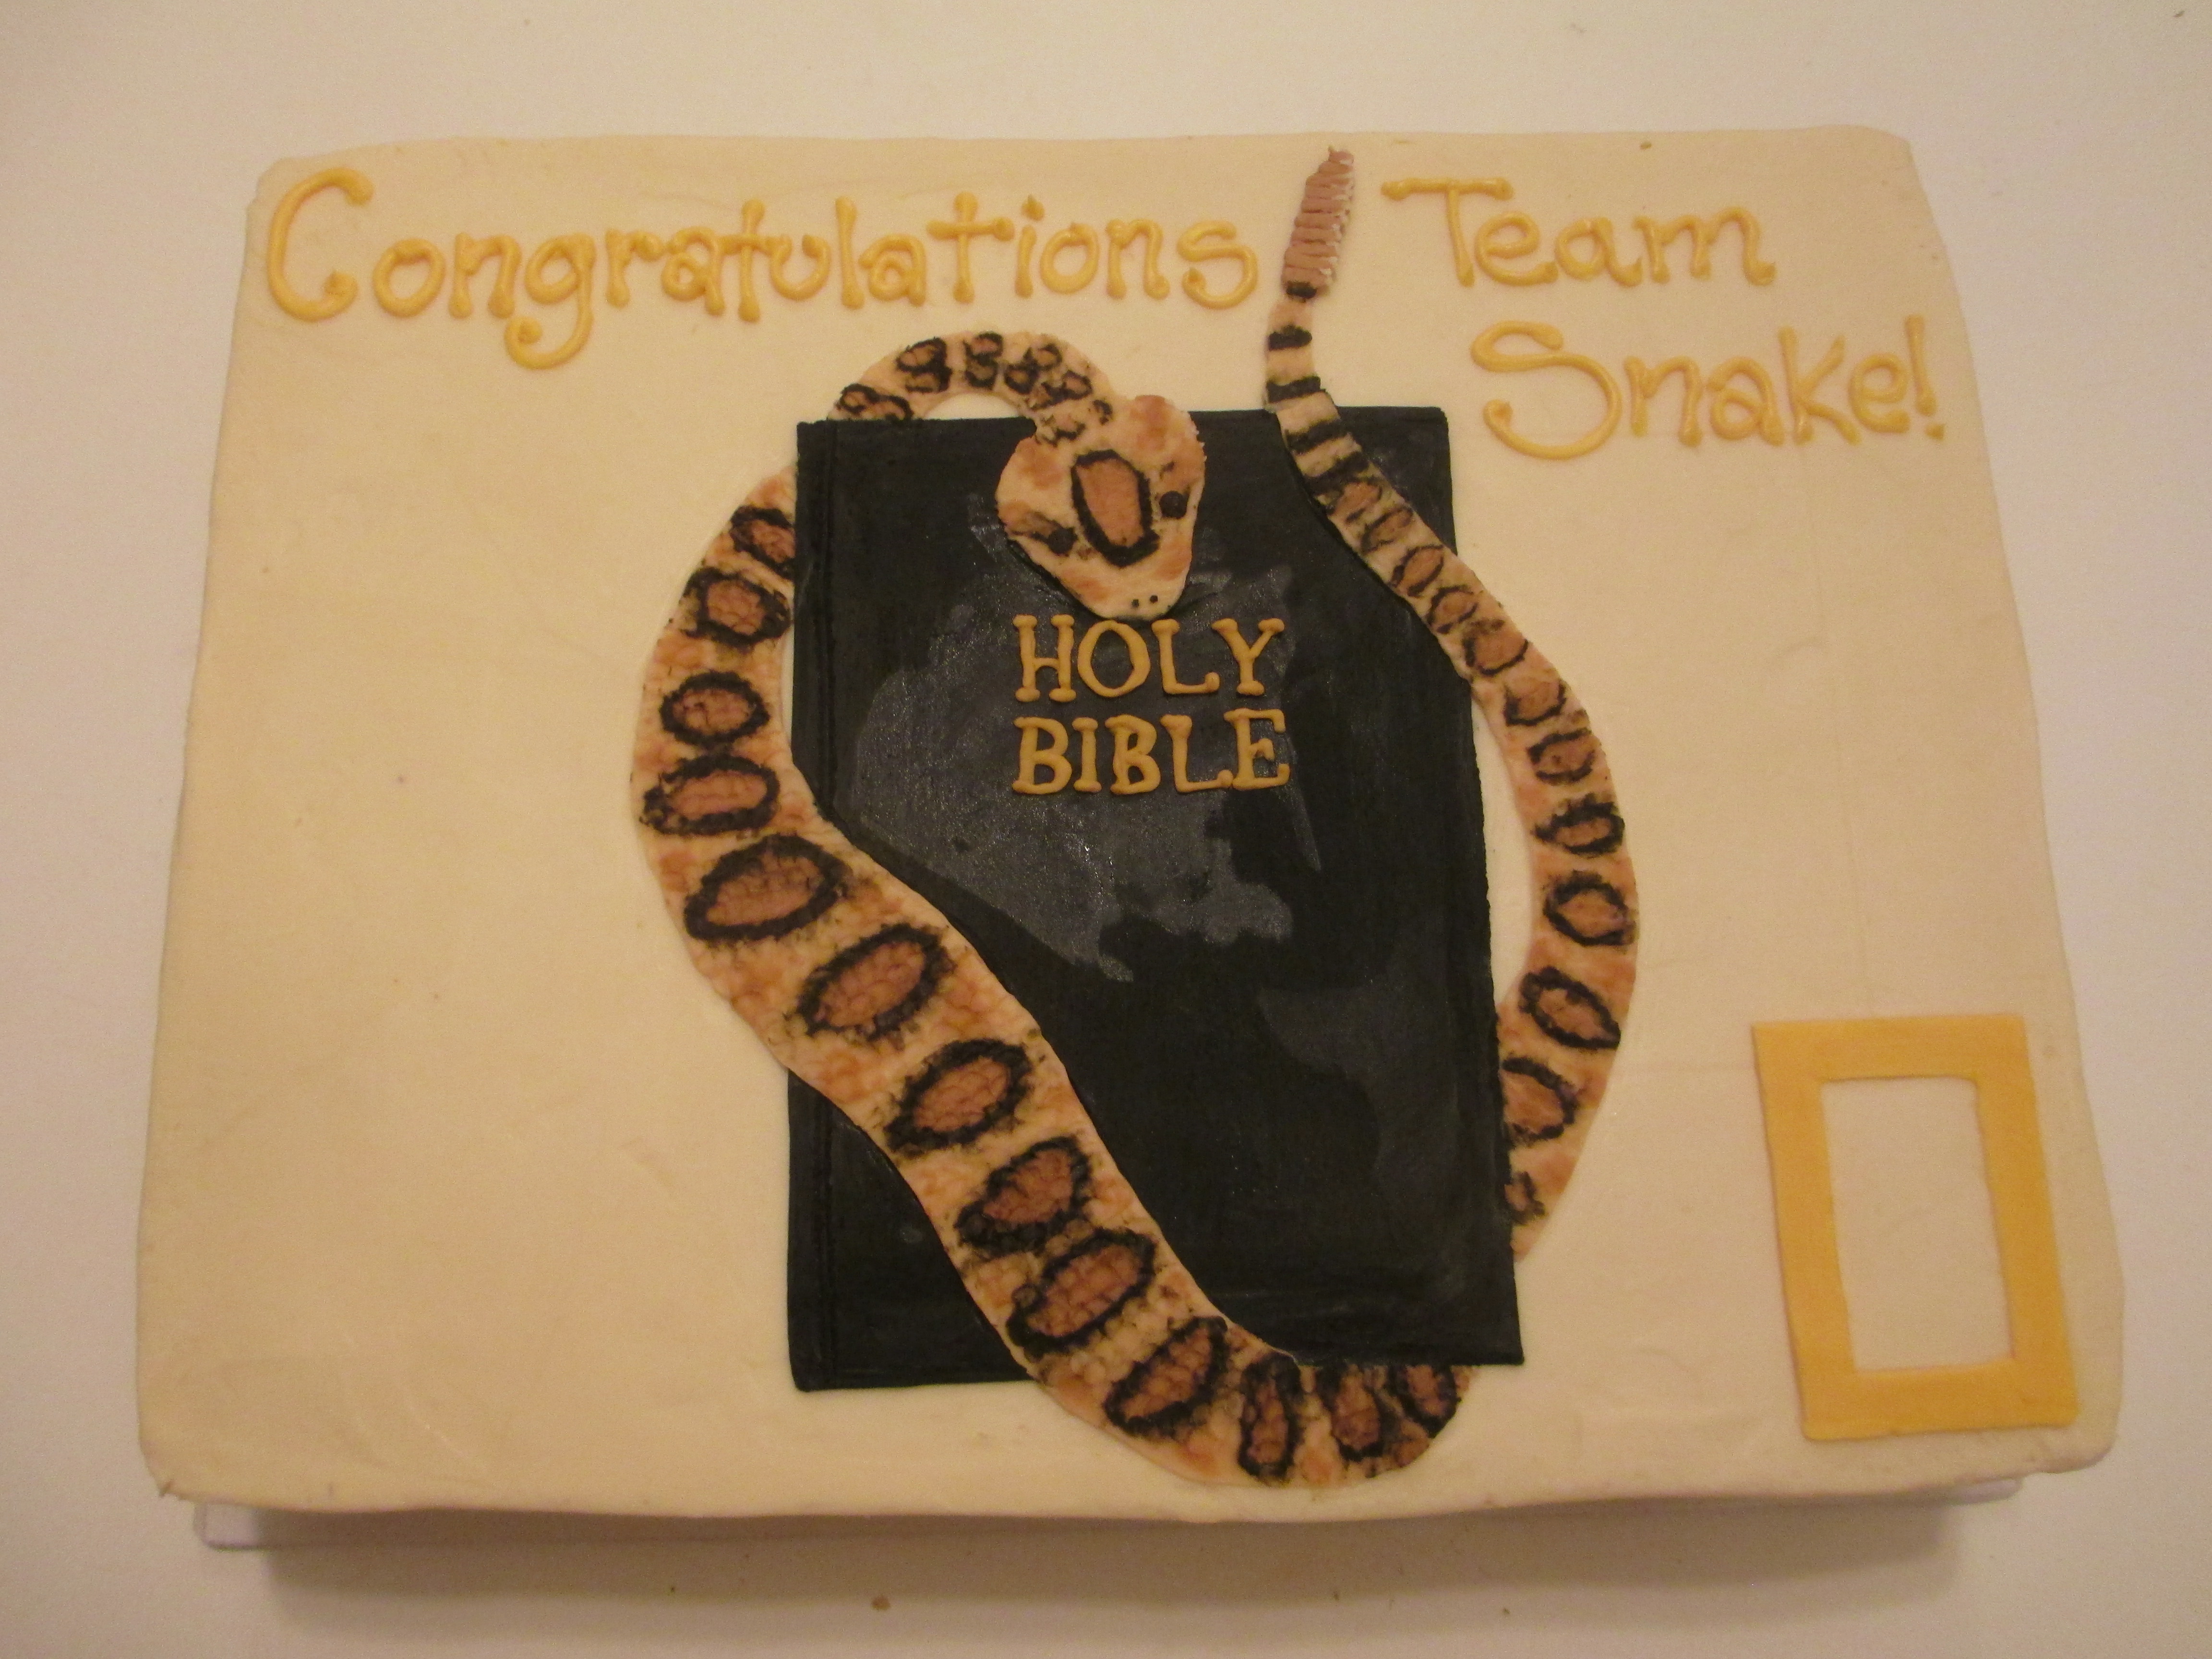 Congratulations Team
Snake!
HOLY
BIBLE